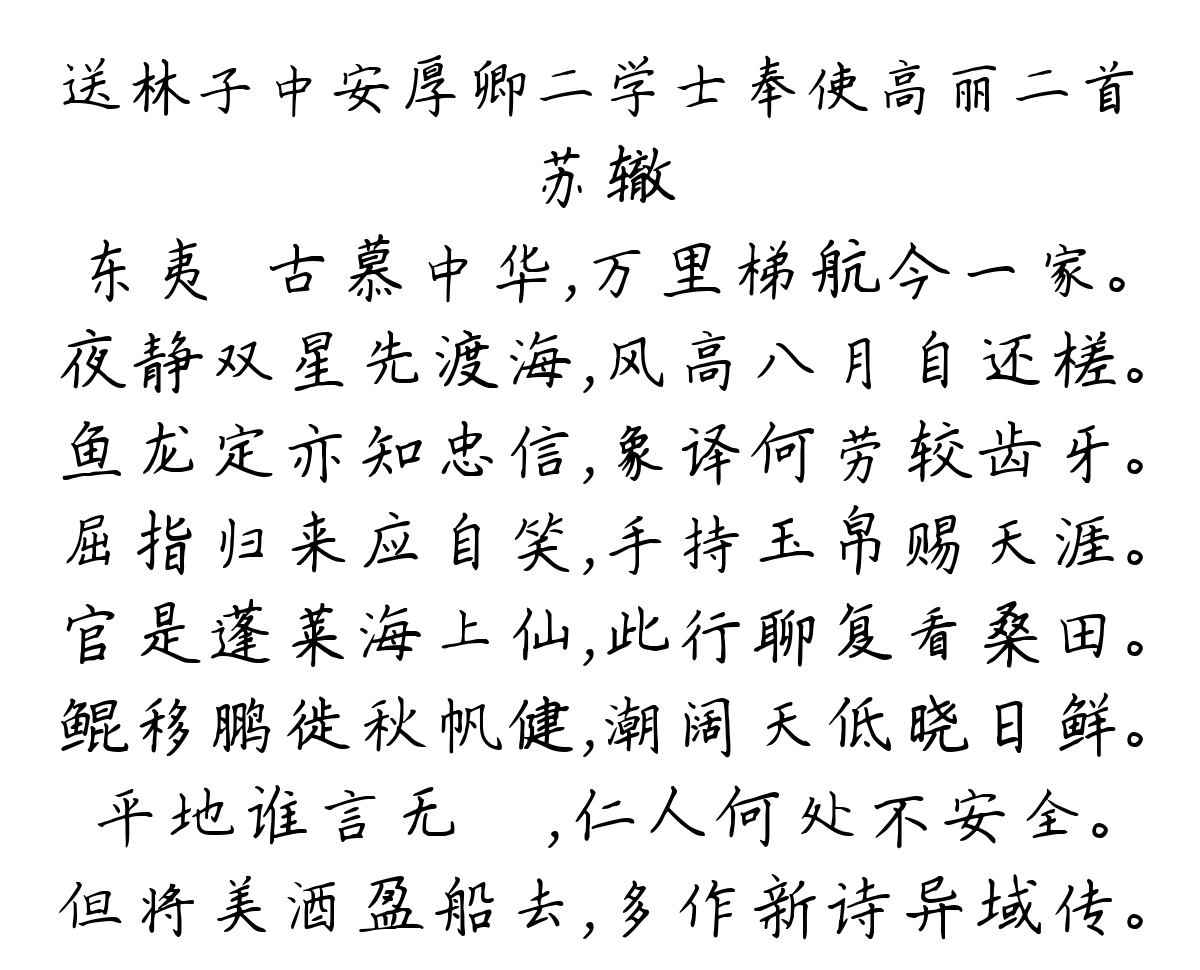 送林子中安厚卿二学士奉使高丽二首
苏辙
东夷 古慕中华,万里梯航今一家。
夜静双星先渡海,风高八月自还槎。
鱼龙定亦知忠信,象译何劳较齿牙。
屈指归来应自笑,手持玉帛赐天涯。
官是蓬莱海上仙,此行聊复看桑田。
鲲移鹏徙秋帆健,潮阔天低晓日鲜。
平地谁言无 ,仁人何处不安全。
但将美酒盈船去,多作新诗异域传。